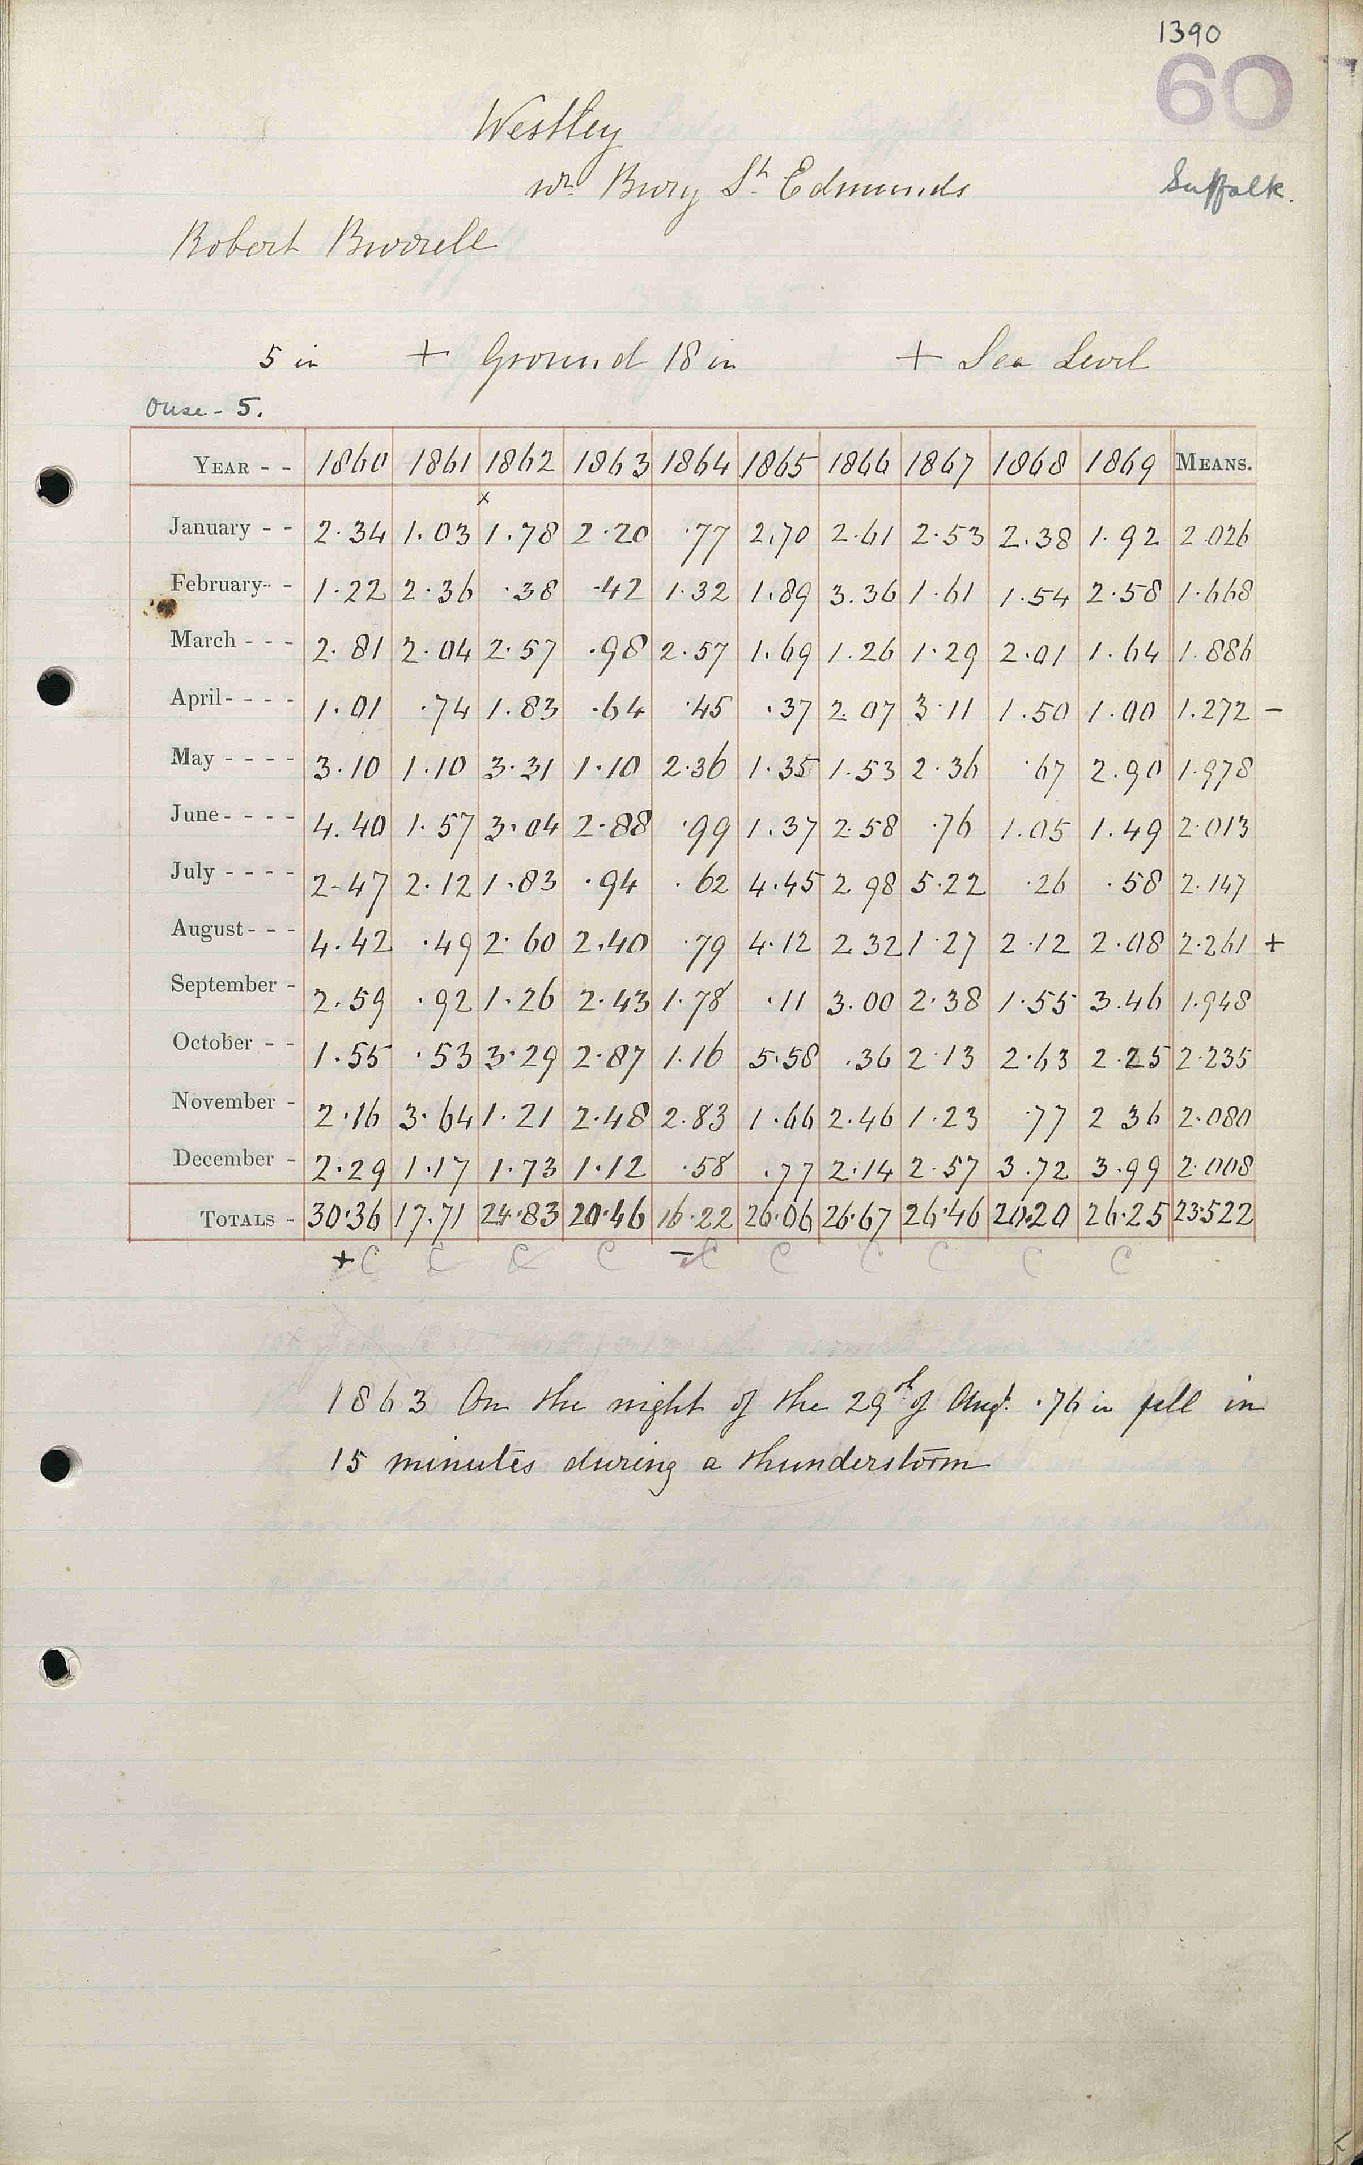 1390
60
Westley
nr Bury St Edmunds
Suffolk.
Robert Burrell
5 in + Ground 18 in + Sea Level
Ouse - 5.
YEAR - - 1860 1861 1862 1863 1864 1865 1866 1867 1868 1869 MEANS.
x
January - - 2.34 1.03 1.78 2.20 .77 2.70 2.61 2.53 2.38 1.92 2.026
February - - 1.22 2.36 .38 .42 1.32 1.89 3.36 1.61 1.54 2.58 1.668
March - - - 2.81 2.04 2.57 .98 2.57 1.69 1.26 1.29 2.01 1.64 1.886
April - - - - 1.01 .74 1.83 .64 .45 .37 2.07 3.11 1.50 1.00 1.272 -
May - - - - 3.10 1.10 3.31 1.10 2.36 1.35 1.53 2.36 .67 2.90 1.978
June - - - - 4.40 1.57 3.04 2.88 .99 1.37 2.58 .76 1.05 1.49 2.013
July - - - - 2.47 2.12 1.83 .94 .62 4.45 2.98 5.22 .26 .58 2.147
August - - - 4.42 .49 2.60 2.40 .79 4.12 2.32 1.27 2.12 2.08 2.261 +
September - 2.59 .92 1.26 2.43 1.78 .11 3.00 2.38 1.55 3.46 1.948
October - - 1.55 .53 3.29 2.87 1.16 5.58 .36 2.13 2.63 2.25 2.235
November - 2.16 3.64 1.21 2.48 2.83 1.66 2.46 1.23 .77 2 36 2.080
December - 2.29 1.17 1.73 1.12 .58 .77 2.14 2.57 3.72 3.99 2.008
TOTALS - 30.36 17.71 24.83 20.46 16.22 26.06 26.67 26.46 20.20 26.25 23.522
+ C C C C - C C C C C C
1863 On the night of the 29th of Augt. .76 in fell in
15 minutes during a thunderstorm